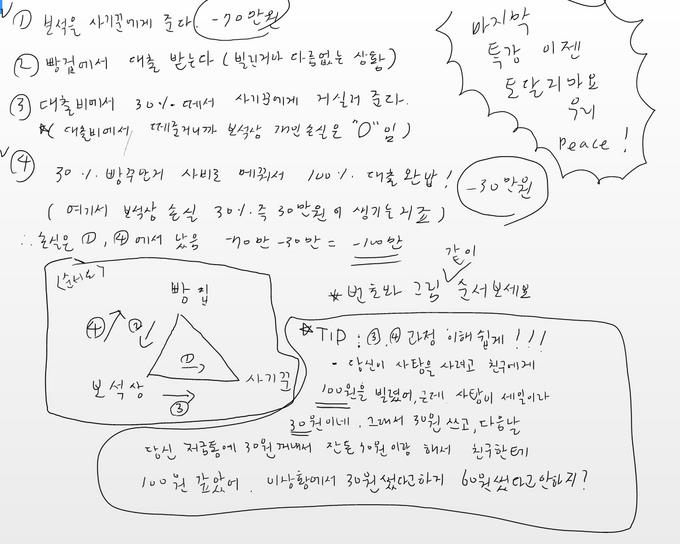 ① 보석을 사기꾼에게 준다. -70만원
② 빵집에서 대출 받는다 (빌린거나 다름없는 상황)
③ 대출비에서 30% 떼서 사기꾼에게 거실러 준다.
★ (대출비에서 떼준거니까 보석상 개인손실은 "0"임)
④ 30% 빵꾸난거 사비로 메꿔서 100% 대출완납! -30만원
(여기서 보석상 손실 30% 즉 30만원이 생기는 거죠)
∴ 손실은 ①, ④에서 났음 -70만 -30만 = -100만
마지막
특강 이젠
토달지마요
우리
peace!
같이
★ 번호와 그림 순서보세요
(순서도)
빵집
④ ②
①
보석상 사기꾼
③
★TIP : ③,④ 과정 이해쉽게!!!
- 당신이 사탕을 사려고 친구에게
100원을 빌렸어, 근데 사탕이 세일이라
30원이네. 그래서 30원 쓰고, 다음날
당신 저금통에 30원 꺼내서 잔돈 70원이랑 해서 친구한테
100원 갚았어. 이상황에서 30원 썼다고하지 60원 썼다고안하지?